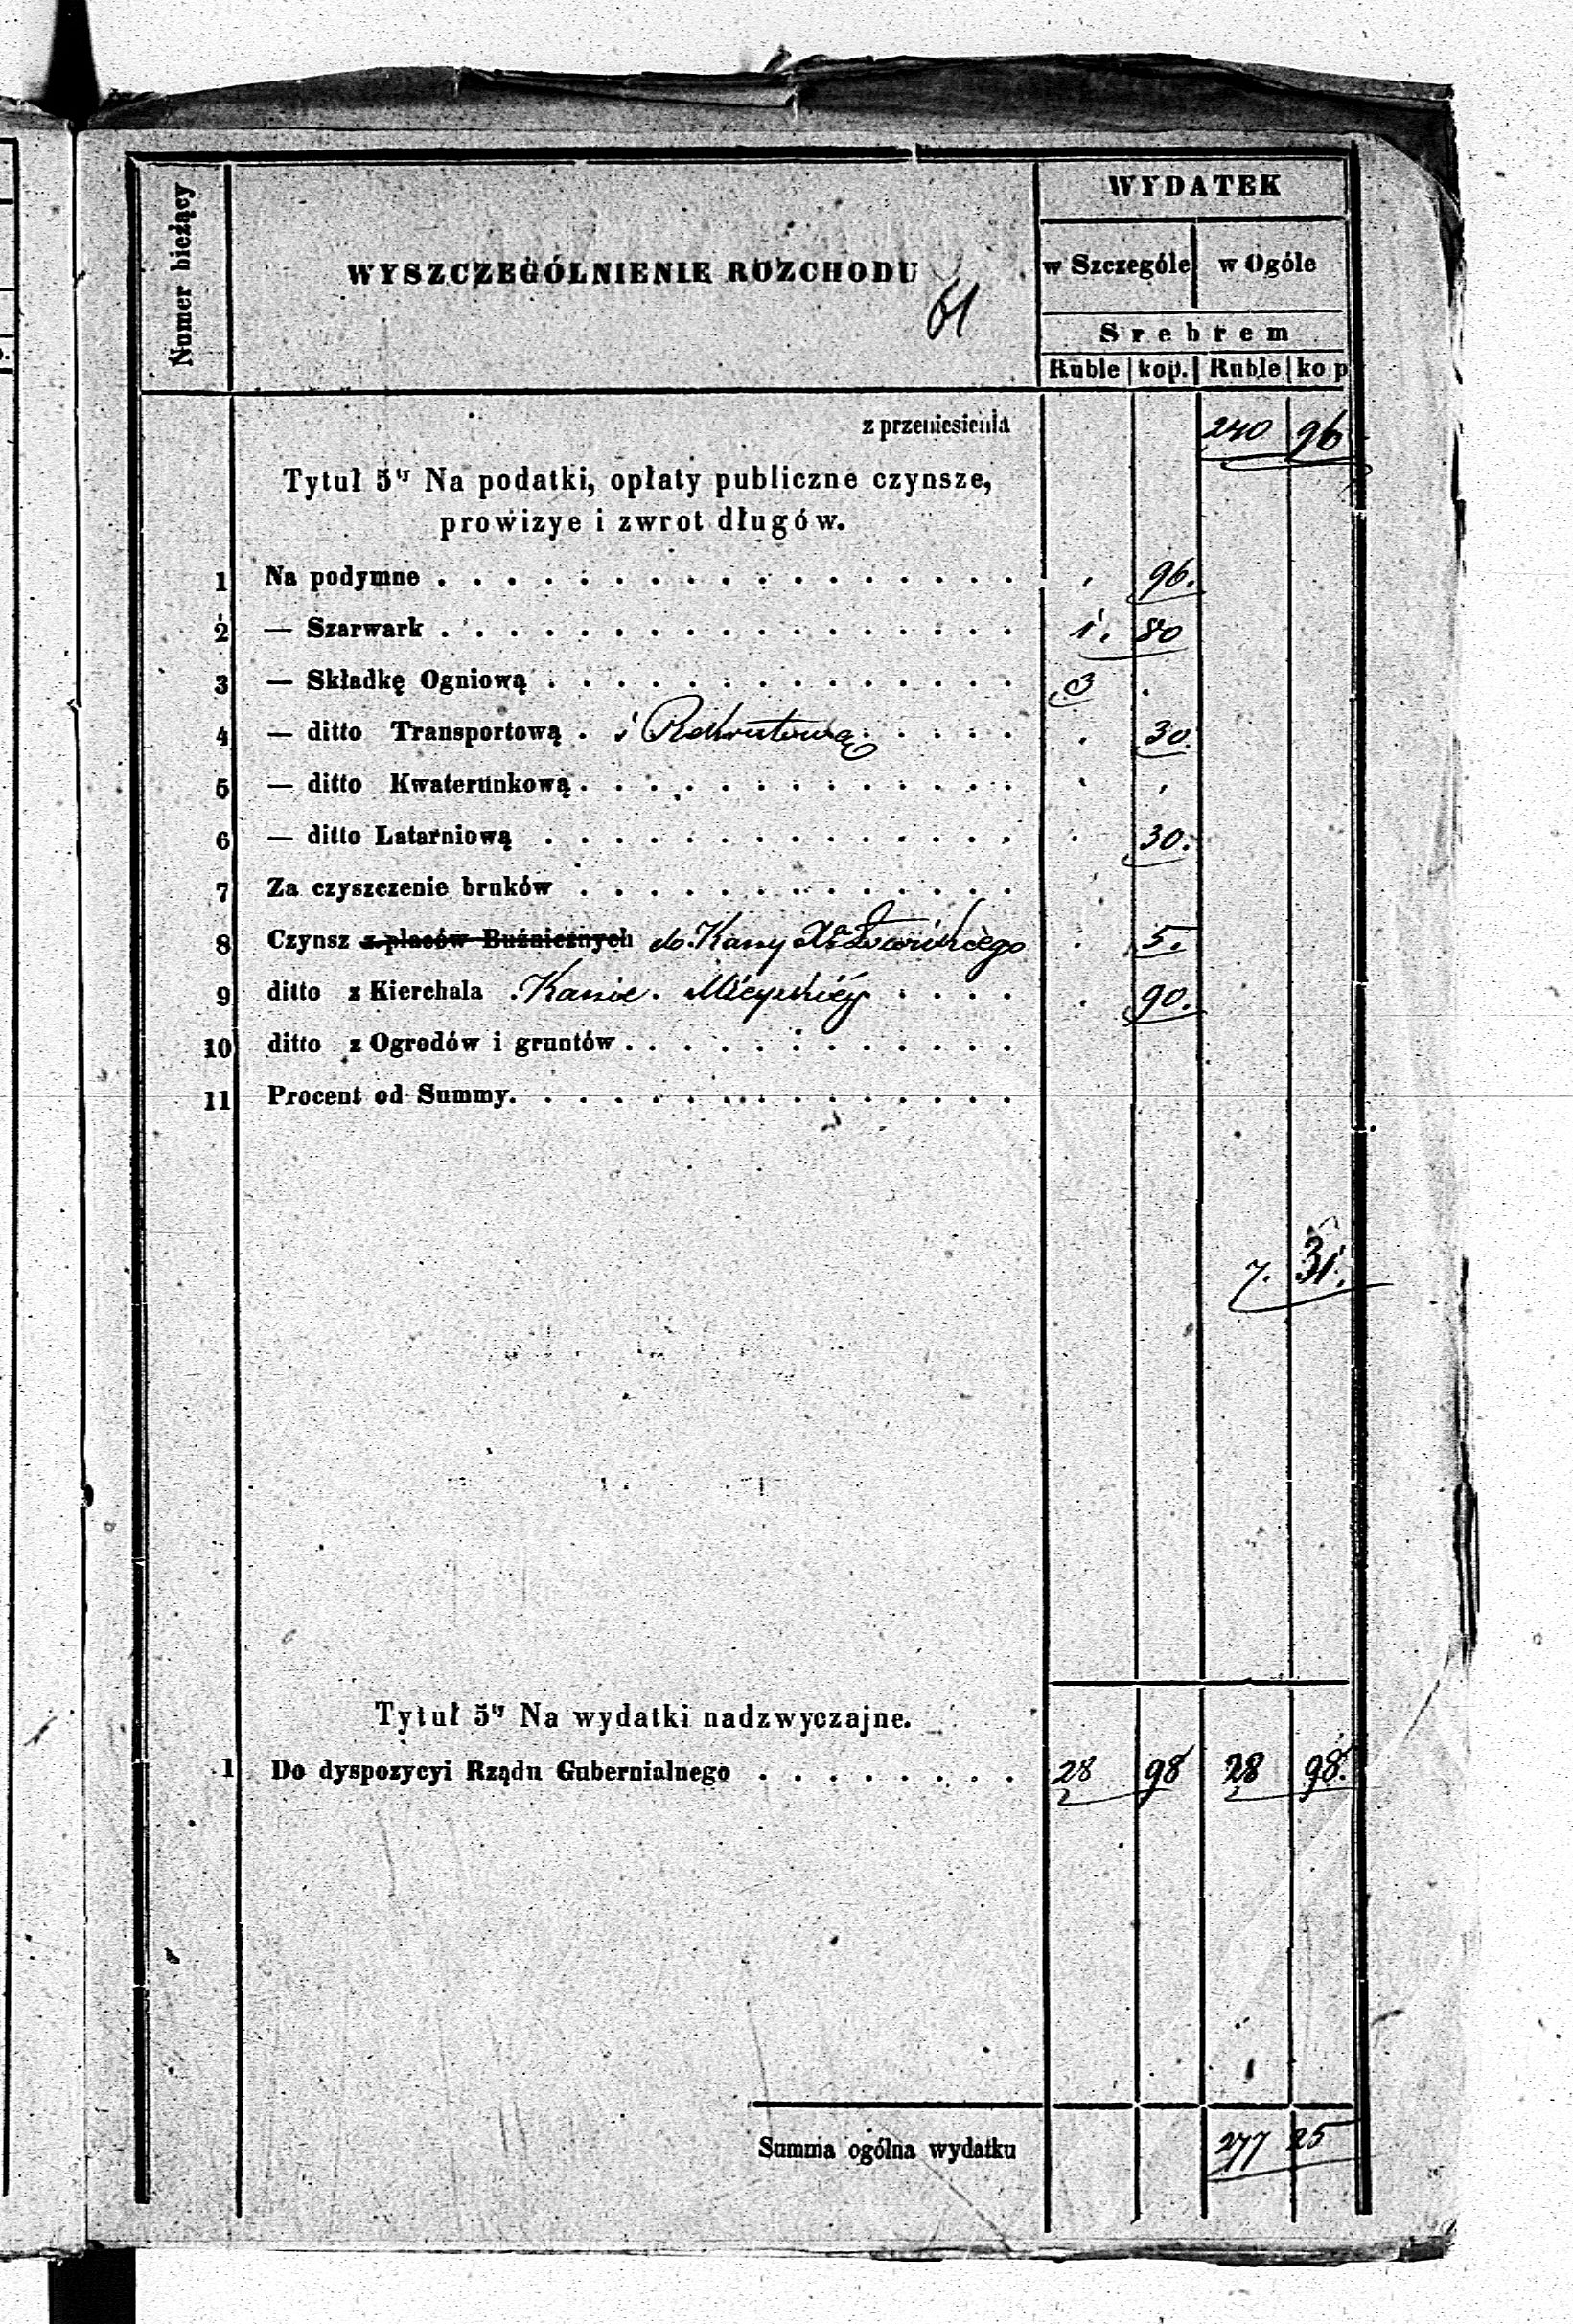 Numer bieżący
WYSZCZEGÓLNIENIE ROZCHODU
61
WYDATEK
w Szczególe w Ogóle
Srebrem
Ruble kop. Ruble kop
z przeniesienia 240 96
Tytuł 5ty Na podatki, opłaty publiczne czynsze,
prowizye i zwrot długów.
1 Na podymne . . . . . , 96.
2 — Szarwark . . . . . 1. 80
3 — Składkę Ogniową . . . . . 3 .
4 — ditto Transportową . i Rekrutową . . . . . . 30.
5 — ditto Kwaterunkową . . . . .
6 — ditto Latarniową . . . . . . 30.
7 Za czyszczenie bruków . . . . .
8 Czynsz z placów Buźnicznych do Kassy 5.
9 ditto z Kierchala Kassie Mieyskiéy . . . . . 90.
10 ditto z Ogrodów i gruntów . . . . .
11 Procent od Summy. . . . . .
7. 31.
Tytuł 5ty Na wydatki nadzwyczajne.
1 Do dyspozycyi Rządu Gubernialnego . . . . . 28 98 28 98.
Summa ogólna wydatku 277 25